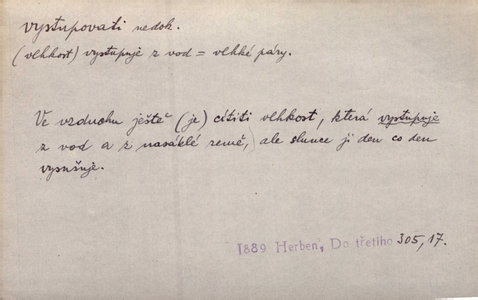 vystupovati nedok.
(vlhkost) vystupuje z vod = vlhké páry.
Ve vzduchu ještě (je) cítiti vlhkost, která vystupuje
z vod a z nasáklé země, ale slunce ji den co den
vysušuje.
1889 Herben, Do třetího 305,17.